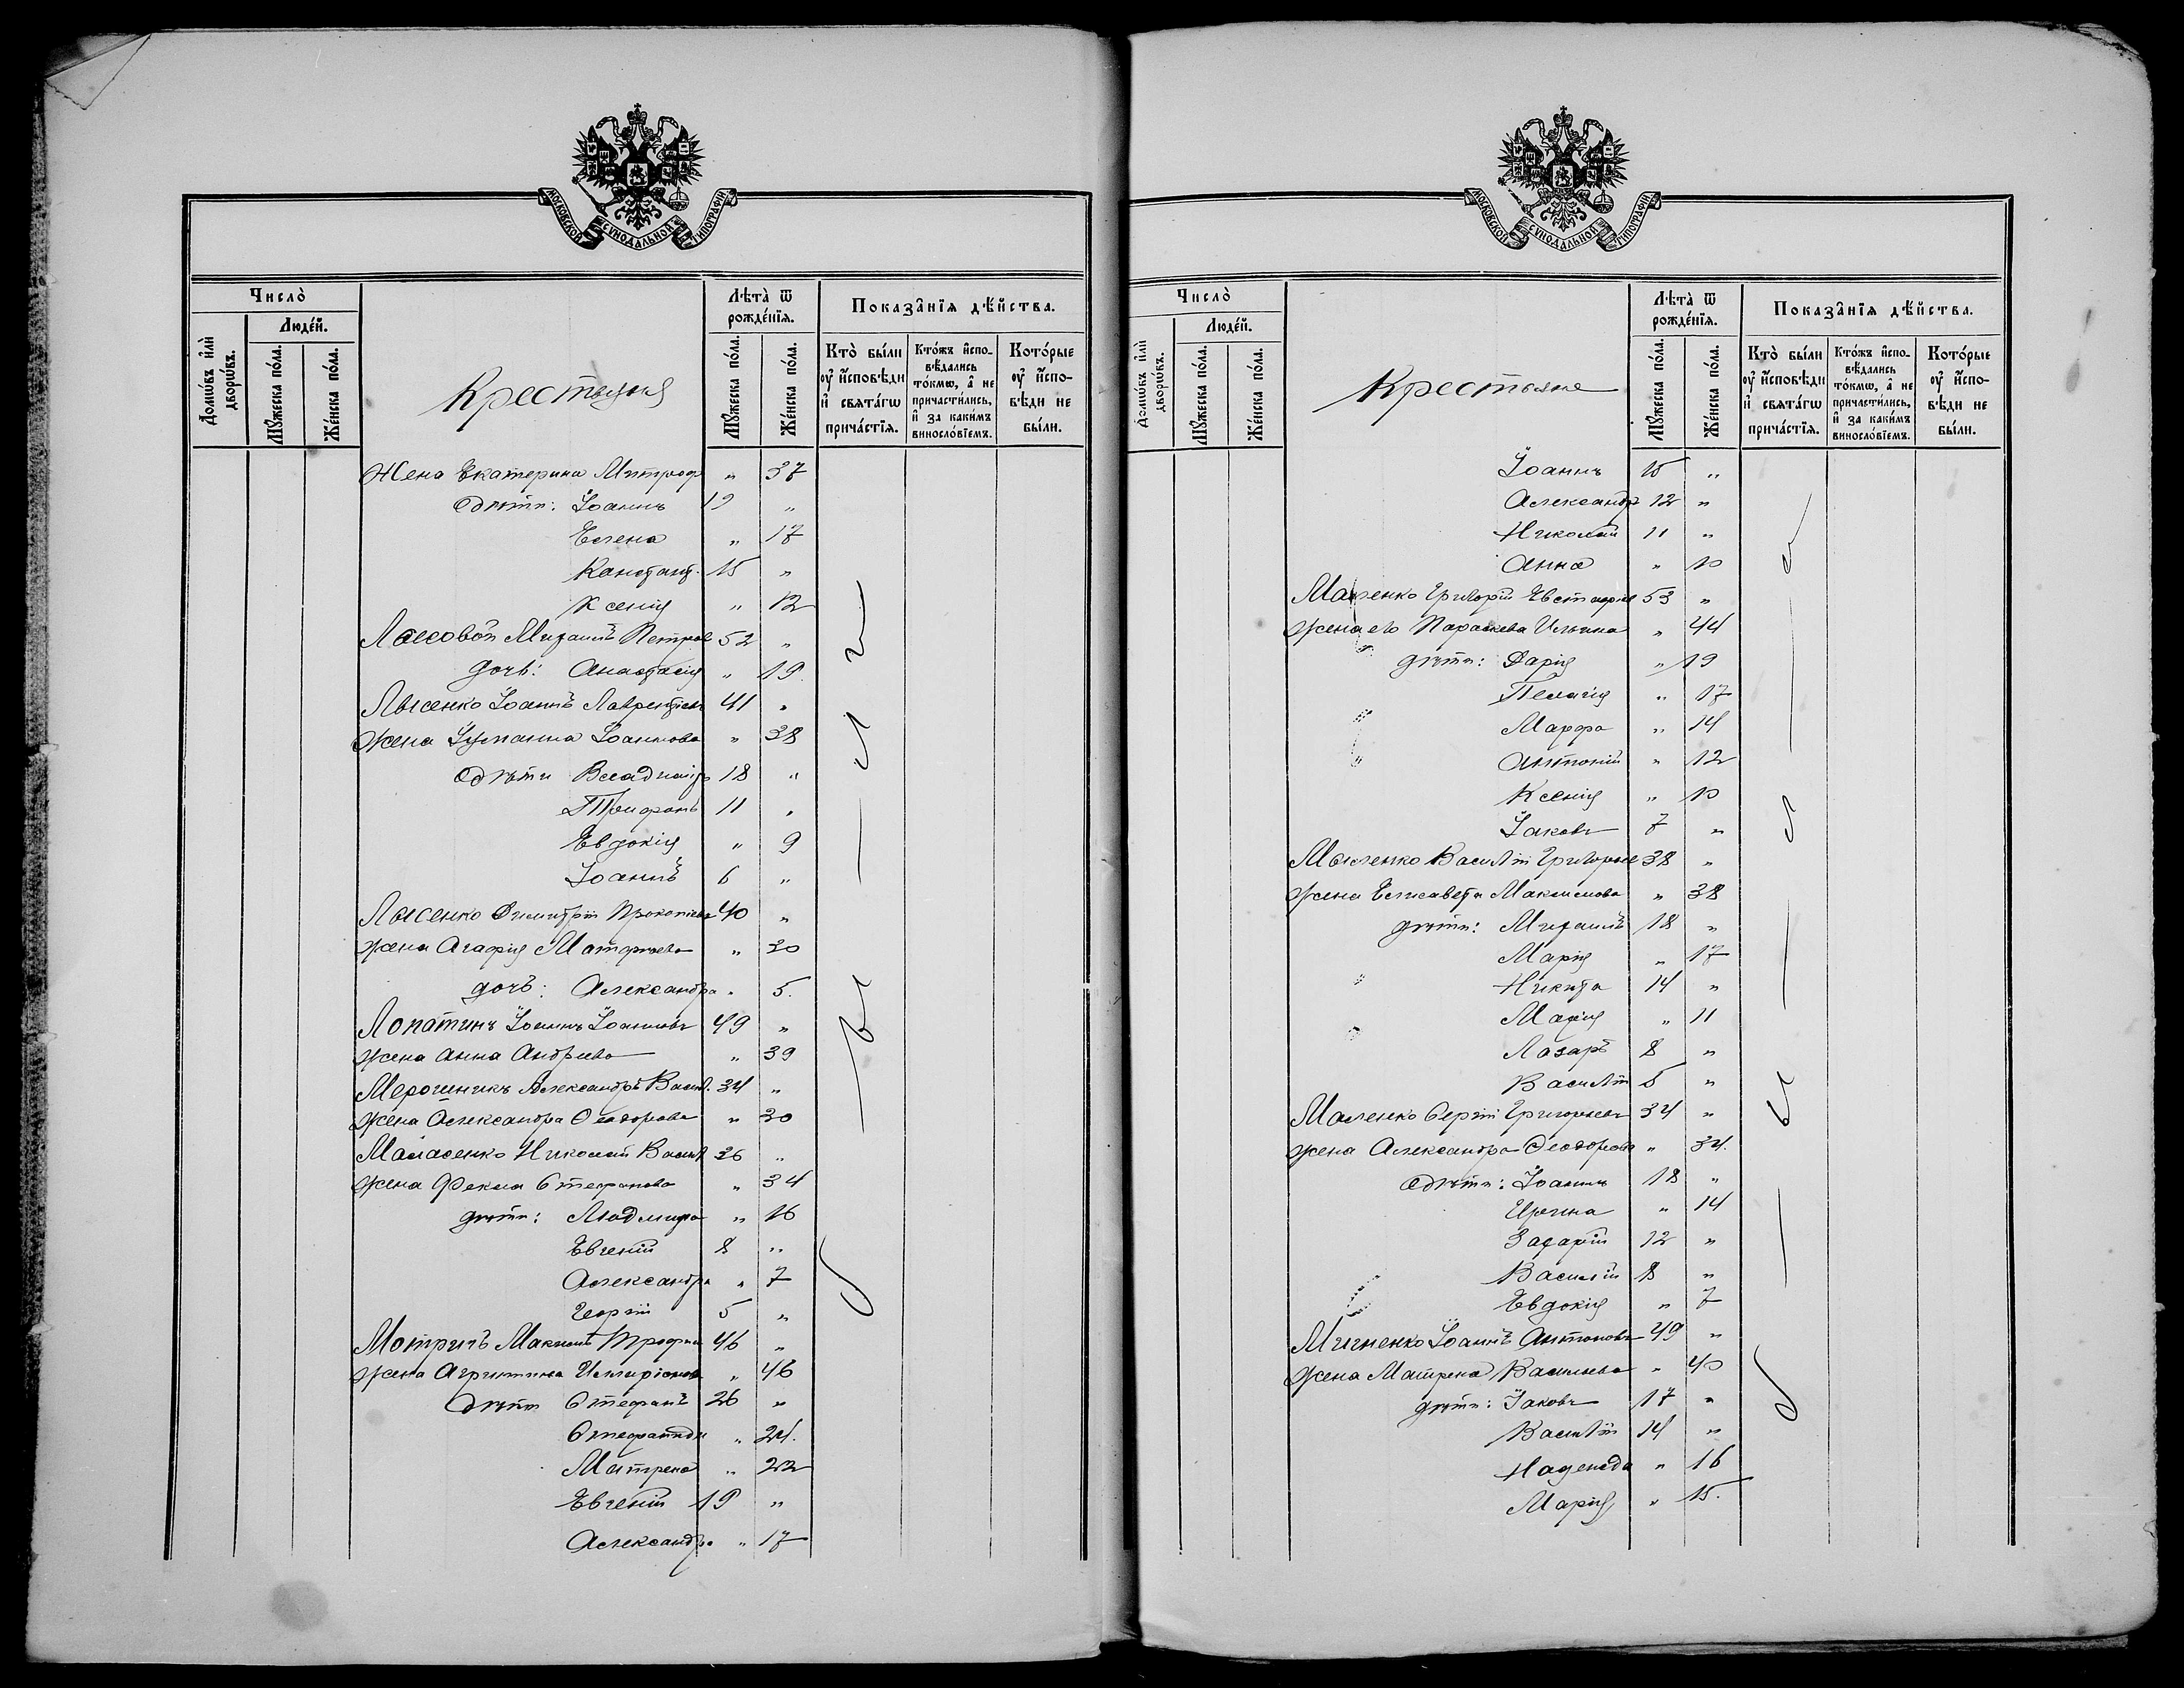 МОСКОВСКОЙ СѴНОДАЛЬНОЙ ТИПОГРАФІИ
Число̀
Людéй.
Домѡ́въ и҆лѝ дворѡ́въ.
Мꙋ́жеска по́ла.
Же́нска по́ла.
Крестьяне
Лѣта̀ ѿ рожде́нїѧ.
Мꙋ́жеска по́ла.
Же́нска по́ла.
Показа̂нїѧ дѣ́йства.
Кто̀ бы́ли оу҆ и҆́сповѣди и҆ свѧта́гѡ прича́стїѧ.
Кто́жъ и҆спо-вѣ́дались то́кмѡ, а҆ не причасти́лись, и҆ за каки́мъ винослόвїемъ.
Кото́рые оу҆ и҆́спо-вѣди не бы́ли.
Жена Екатерина Митроф „ 37
Дѣти: Іоаннъ 19 „
Елена „ 17
Констант. 15 „
Ксенія „ 12
Лассовой Михаилъ Петров 52 „
дочь: Анастасія „ 19.
Лысенко Іоаннъ Лаврентіев 41 „
Жена Іуліанна Іоаннова „ 38
Дѣти Владиміръ 18 „
Трифонъ 11 „
Евдокія „ 9
Іоаннъ 6 „
Лысенко Димитрій Прокопіевъ 40 „
Жена Агафія Матфѣева „ 30
дочь: Александра „ 5.
Лопатинъ Іоаннъ Іоанновъ 49 „
Жена Анна Андреева „ 39
Мерошникъ Александръ Васил. 34 „
Жена Александра Ѳеодорова „ 30
Маласенко Николай Васил 36 „
Жена Фекла Стефанова „ 34
дѣти: Людмила „ 16
Евгеній 8 „
Александра „ 7
Георгій 5 „
Мотричъ Максимъ Трофим 46 „
Жена Агрипина „ 46
Дѣти Стефанъ 26 „
Стефанида „ 24.
Матрена „ 22
Евгеній 19 „
Александра „ 17
МОСКОВСКОЙ СѴНОДАЛЬНОЙ ТИПОГРАФІИ
Число̀
Людéй.
Домѡ́въ и҆лѝ дворѡ́въ.
Мꙋ́жеска по́ла.
Же́нска по́ла.
Крестьяне
Лѣта̀ ѿ рожде́нїѧ.
Мꙋ́жеска по́ла.
Же́нска по́ла.
Показа̂нїѧ дѣ́йства.
Кто̀ бы́ли оу҆ и҆́сповѣди и҆ свѧта́гѡ прича́стїѧ.
Кто́жъ и҆спо-вѣ́дались то́кмѡ, а҆ не причасти́лись, и҆ за каки́мъ винослόвїемъ.
Кото́рые оу҆ и҆́спо-вѣди не бы́ли.
Іоаннъ 15 „
Александръ 12 „
Николай 11 „
Анна „ 10
Маленко Григорій Евстафіев 53 „
Жена его Параскева Ильина „ 44
дѣти: Дарія „ 19
Пелагія „ 17
Марфа „ 14
Антоній „ 12
Ксенія „ 10
Іаковъ 7 „
Маленко Василій Григорьев 38 „
Жена Елисавета Максимова „ 38
дѣти: Михаилъ 18 „
Марія „ 17
Никита 14 „
Марія „ 11
Лазарь 8 „
Василій 5 „
Маленко Сергій Григорьевъ 34 „
Жена Александра Ѳеодорова „ 34.
Дѣти: Іоаннъ 18 „
Ирина „ 14
Захарій 12 „
Василій 8 „
Евдокія „ 7
Мигненко Іоаннъ Антоновъ 49 „
Жена Матрена Васильева „ 40
дѣти: Іаковъ 17 „
Василій 14 „
Надежда „ 16
Марія „ 15.